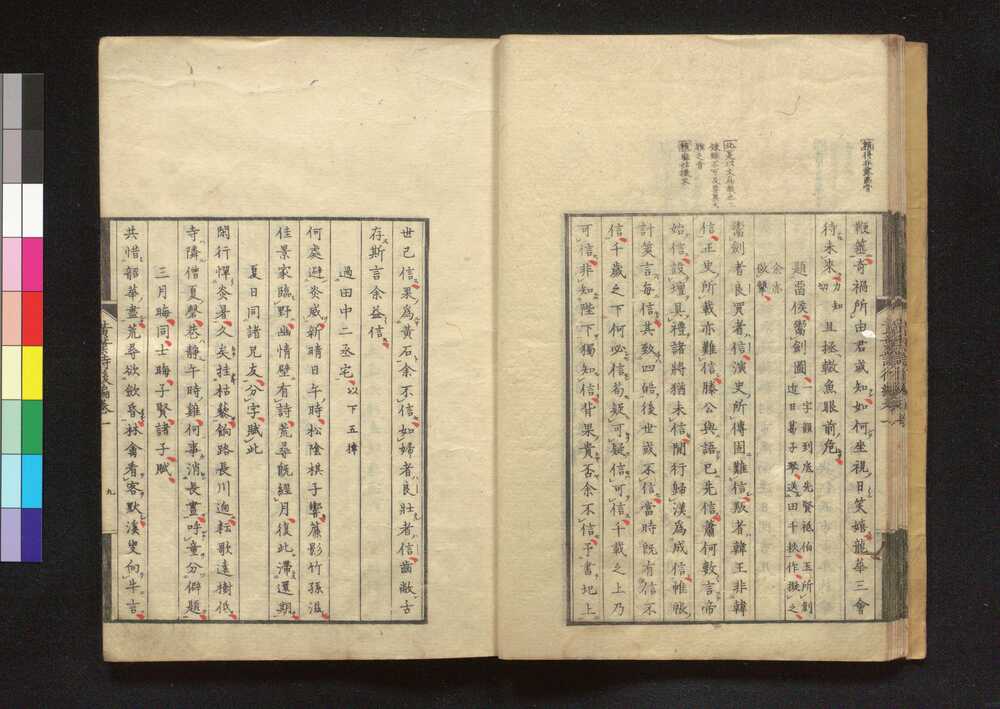 鞭蓋奇禍所由君或知如何坐視日笑嬉龍華三會
待未來切力知且拯轍魚眼前危
題當侯鬻劍圖一字韻到底先賢祇伯玉所創
近日葛子琴送田千秋作擬之
余亦
倣顰
鬻劍者良買者信演史所傳固難信叛者韓王非韓
信正史所載亦難信滕公與語已先信蕭何數言帝
始信設壇具禮諸將猶未信閒行歸漢為成信帷帳
計筭言每信其致四皓後世或不信當時既有信不
信千歲之下何必信苟疑可疑信可信千載之上乃
可信非知陛下獨知信背果貴否余不信予書圯上
世已信果為黃石余不信如婦者良壯者信齒敝舌
存斯言余益信
過田中二丞宅以下五擇
何處避炎威新晴日午時松陰棋子響簾影竹孫滋
佳景家臨野幽情壁有詩荒尋既經月復此滯還期
夏日同諸兄友分字賦此
閑行憚炎暑久矣挂枯藜餉路長川迤耘歌遠樹低
寺隣僧夏磬巷靜午時雞何事消長晝呼童分僻題
三月晦同士晦子賢諸子賦
共惜韶華盡荒尋欲飲昏林禽看客默溪叟向牛言
九